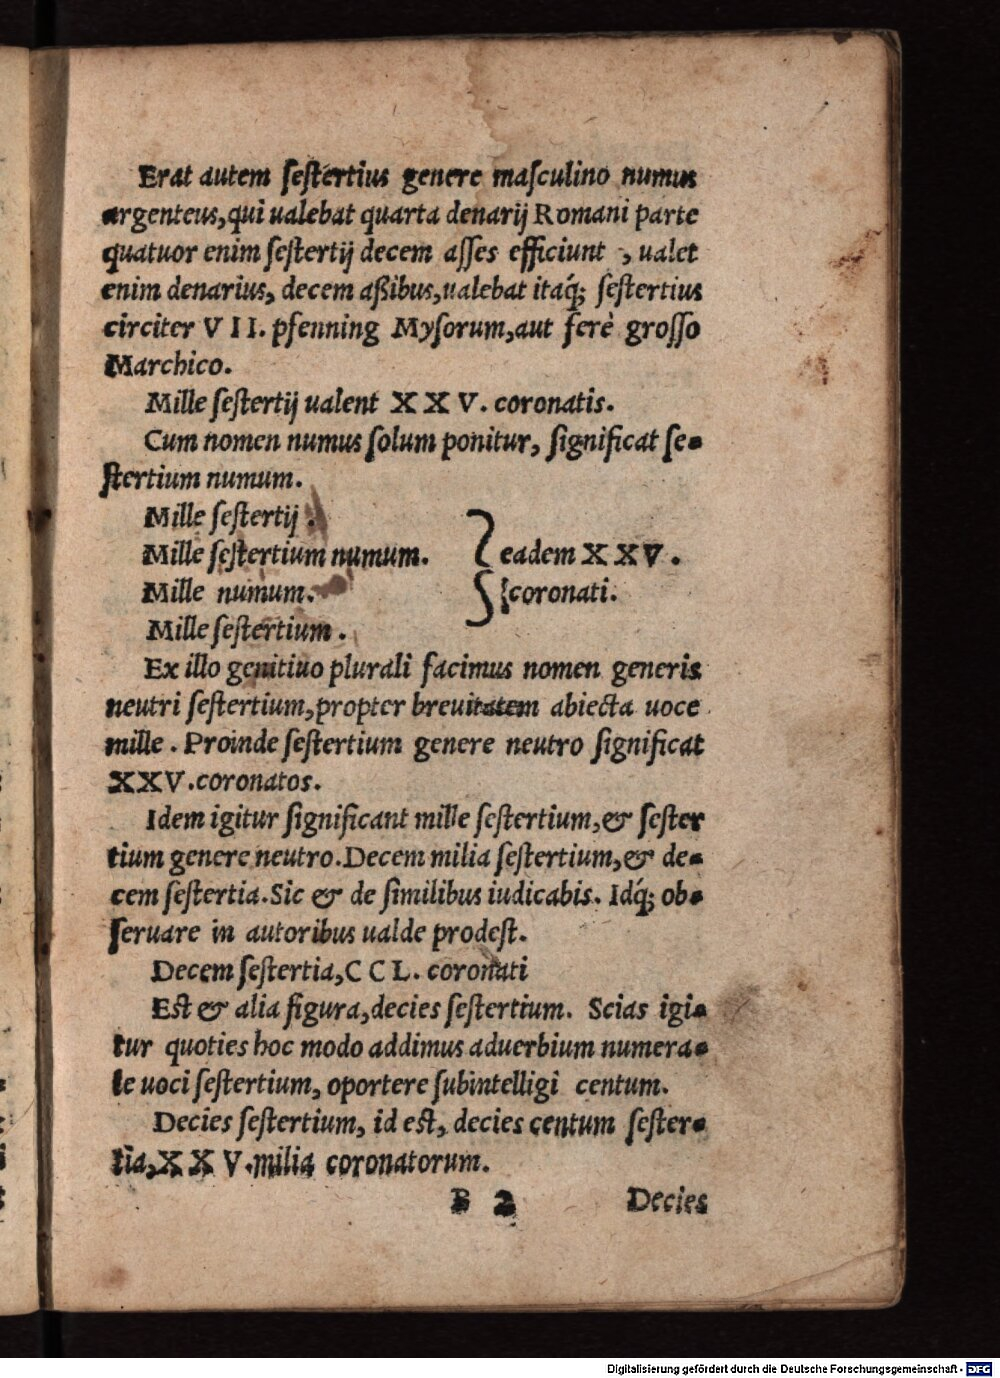 Erat autem ſeſtertius genere maſculino numus
argenteus, qui ualebat quarta denarij Romani parte
quatuor enim ſeſtertij decem aſſes efficiunt , ualet
enim denarius, decem aßibus, ualebat itaq́; ſeſtertius
circiter VII. pfenning Myſorum, aut ferè groſſo
Marchico.
Mille ſeſtertij ualent XXV. coronatis.
Cum nomen numus ſolum ponitur, ſignificat ſe-
ſtertium numum.
Mille ſeſtertij .
Mille ſeſtertium numum. eadem XXV.
Mille numum. coronati.
Mille ſeſtertium .
Ex illo genitiuo plurali facimus nomen generis
neutri ſeſtertium, propter breuitatem abiecta uoce
mille . Proinde ſeſtertium genere neutro ſignificat
XXV. coronatos.
Idem igitur ſignificant mille ſeſtertium, & ſeſter
tium genere neutro. Decem milia ſeſtertium, & de-
cem ſeſtertia. Sic & de ſimilibus iudicabis. Idq́; ob-
ſeruare in autoribus ualde prodeſt.
Decem ſeſtertia, CCL. coronati
Eſt & alia figura, decies ſeſtertium. Scias igi-
tur quoties hoc modo addimus aduerbium numera-
le uoci ſeſtertium, oportere ſubintelligi centum.
Decies ſeſtertium, id eſt, decies centum ſeſter-
tia, XXV. milia coronatorum.
B 2 Decies
Digitalisierung gefördert durch die Deutsche Forschungsgemeinschaft - DFG